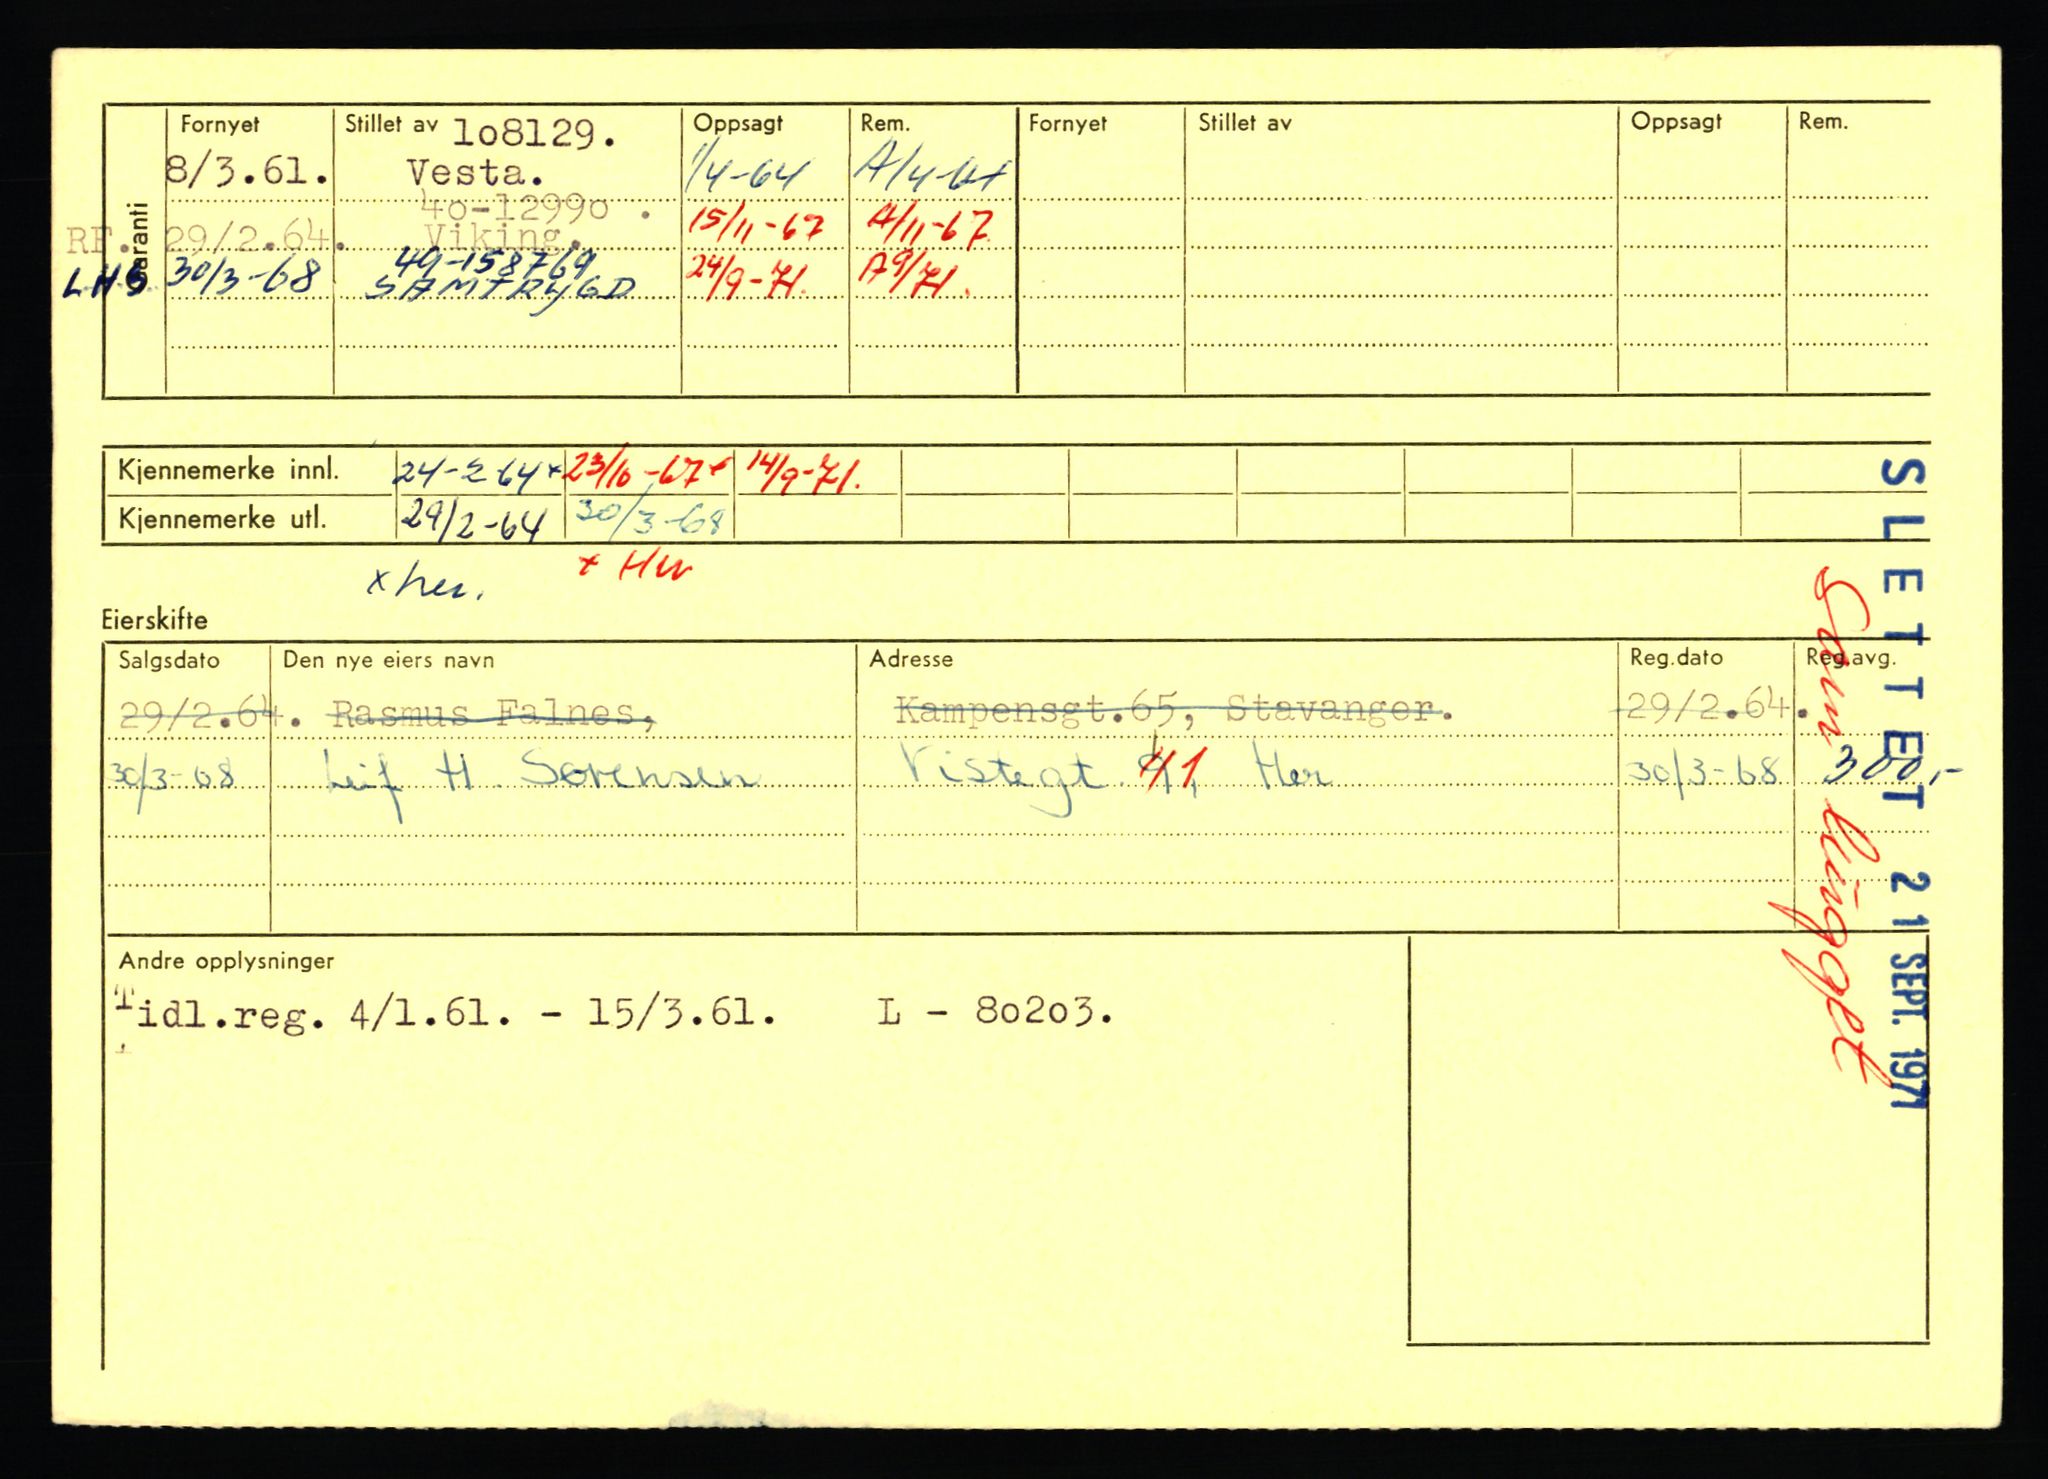 Garanti
Fornyet Stillet av 108129. Oppsagt Rem. Fornyet Stillet av Oppsagt Rem.
8/3.61. Vesta. 1/4-64 A/4-64
40-12990 .
RF. 29/2.64. Viking. 15/11-67 A/11-67
LHS 30/3-68 49-158769 24/9-71. A9/71.
SAMTRYGD
Kjennemerke innl. 24-2-64x 23/10-67x 14/9-71.
Kjennemerke utl. 29/2-64 30/3-68
x her. x Her
Eierskifte
Salgsdato Den nye eiers navn Adresse Reg.dato Reg.avg.
29/2.64. Rasmus Falnes, Kampensgt.65, Stavanger. 29/2.64.
30/3-68 Leif H Sørensen Vistegt. 41, Her 30/3-68 300,-
Andre opplysninger
Tidl.reg. 4/1.61. - 15/3.61. L - 80203.
SLETTET 21 SEPT. 1971